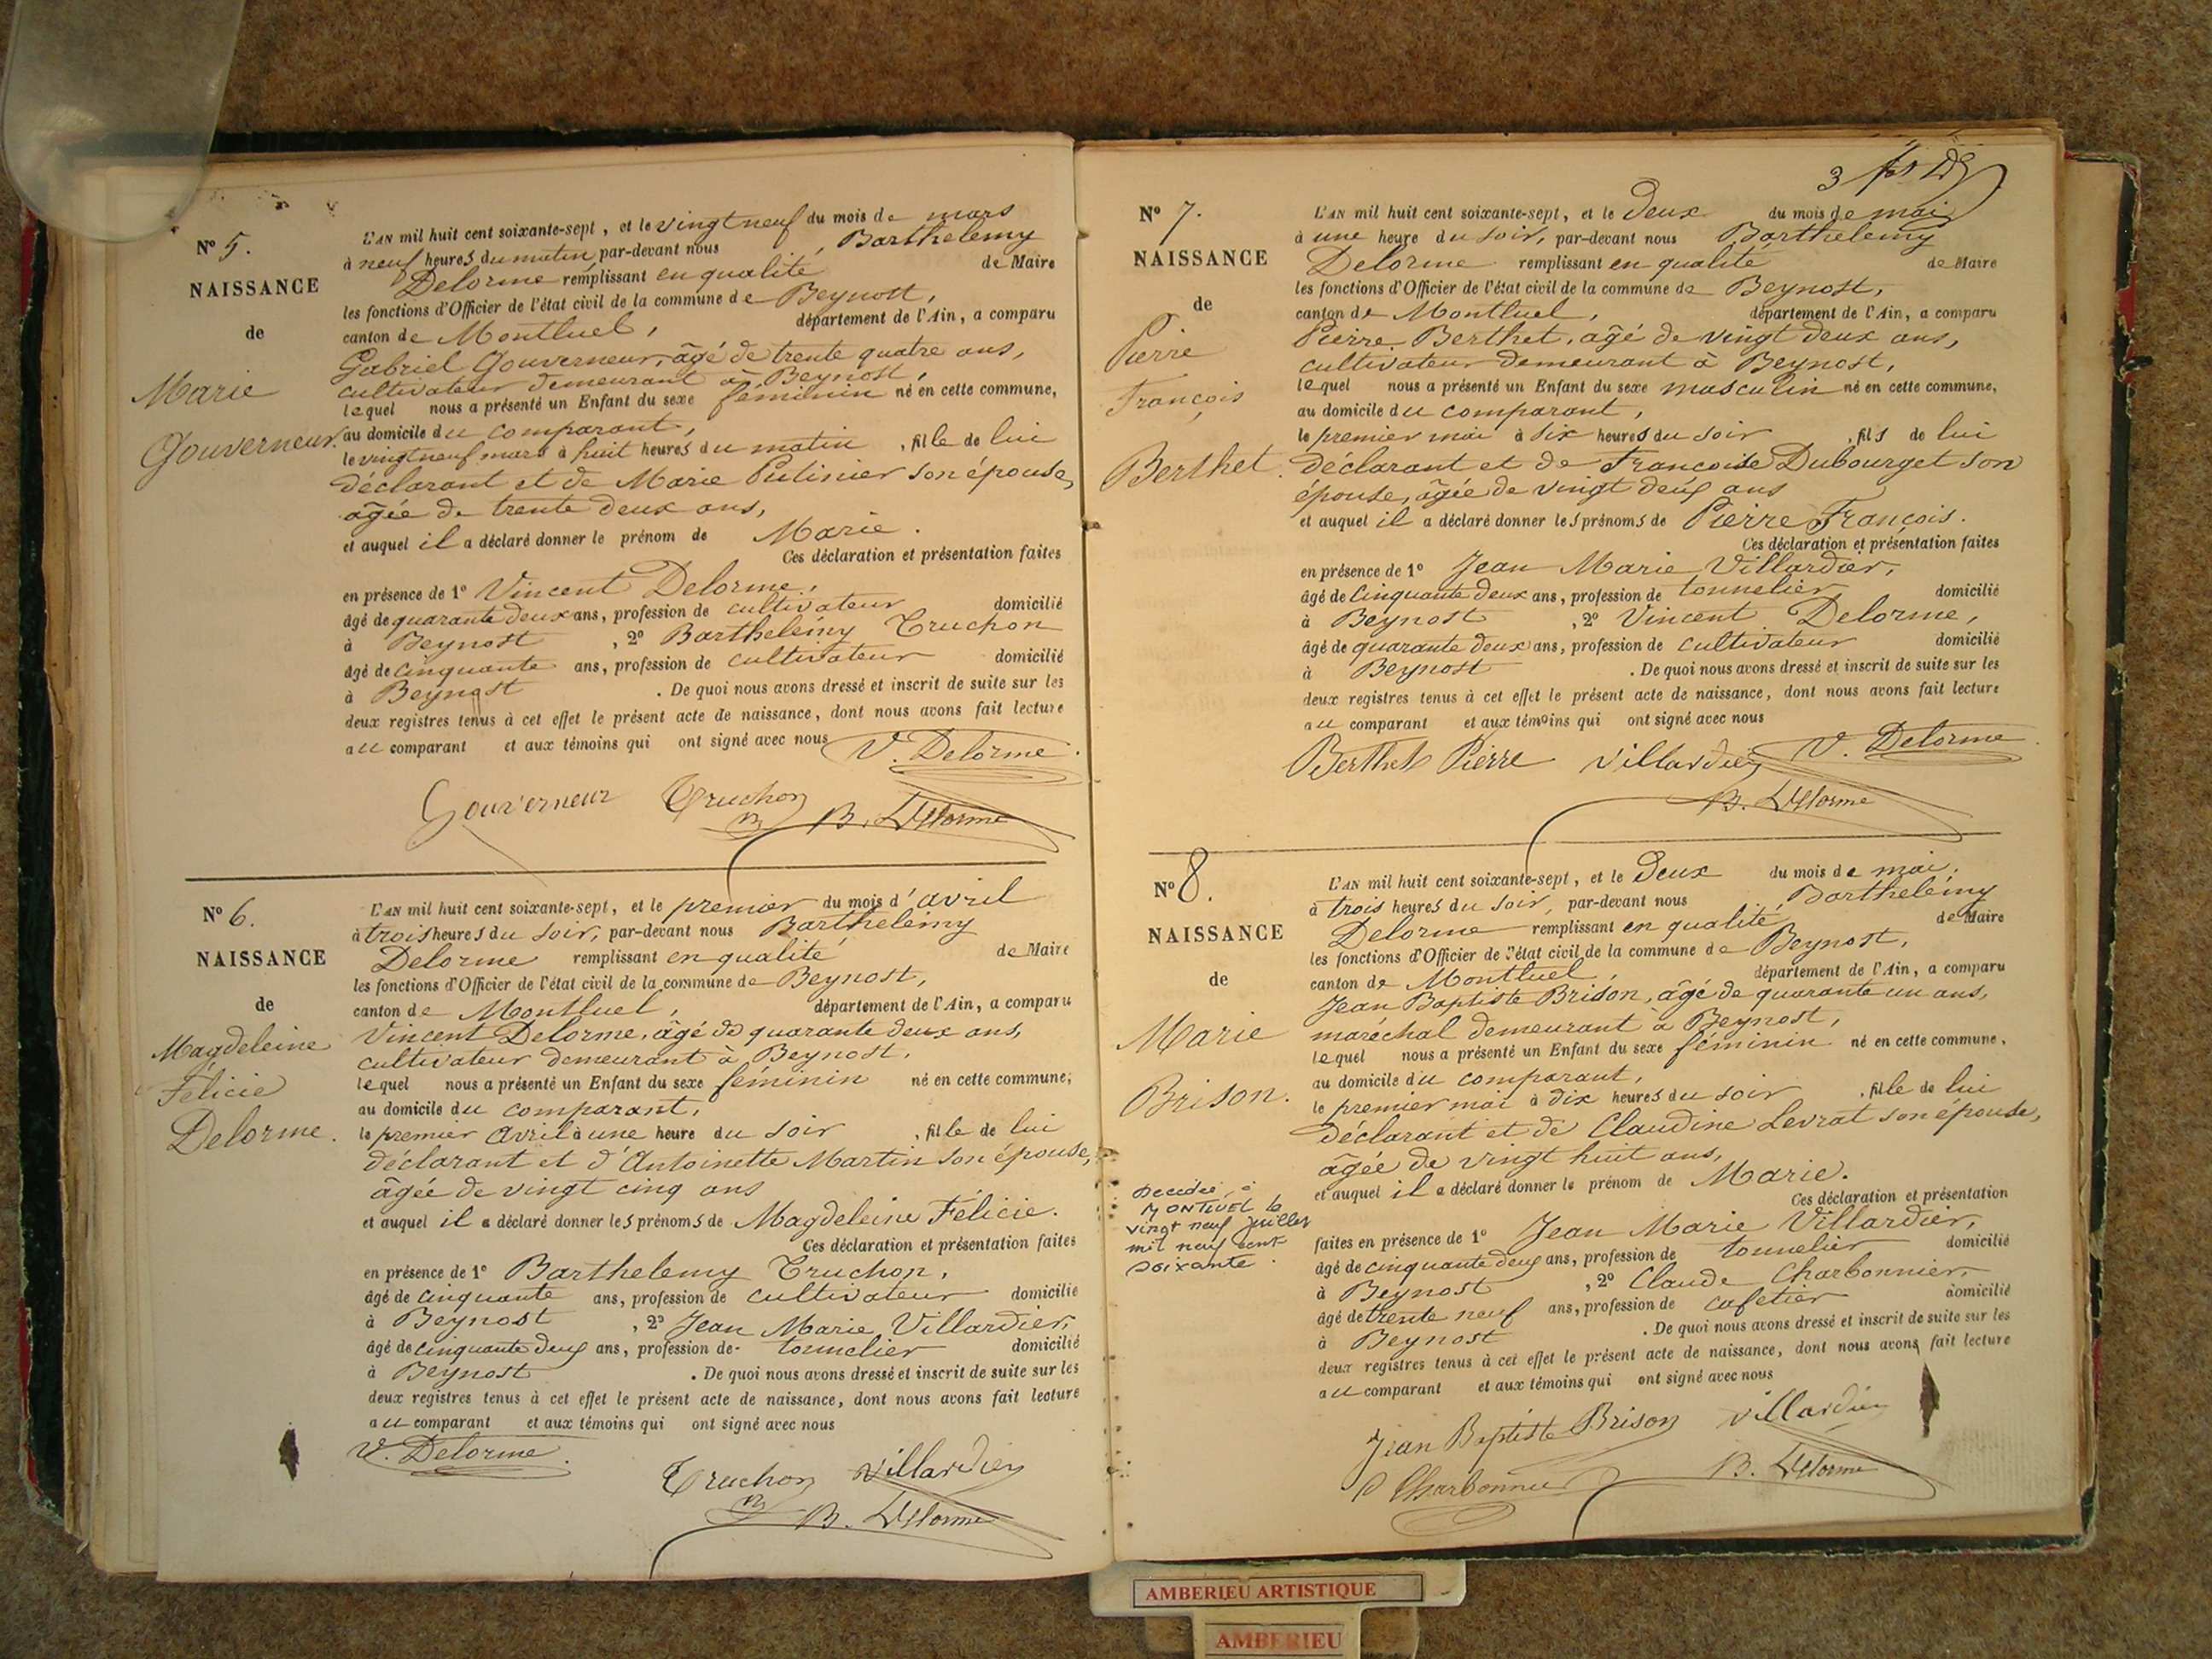 N° 5.
NAISSANCE
de
Marie
Gouverneur
L'AN mil huit cent soixante-sept, et le vingt neuf du mois de mars
à neuf heures du matin par-devant nous, Barthelemy
Delorme remplissant en qualité de Maire
les fonctions d'Officier de l'état civil de la commune de Beynost,
canton de Montluel, département de l'Ain, a comparu
Gabriel Gouverneur, âgé de trente quatre ans,
cultivateur demeurant à Beynost,
lequel nous a présenté un Enfant du sexe féminin né en cette commune,
au domicile du comparant,
le vingt neuf mars à huit heures du matin, fille de lui
déclarant et de Marie Putinier son épouse,
âgée de trente deux ans,
et auquel il a déclaré donner le prénom de Marie.
Ces déclaration et présentation faites
en présence de 1° Vincent Delorme,
âgé de quarante deux ans, profession de cultivateur domicilié
à Beynost, 2° Barthelémy Truchon
âgé de cinquante ans, profession de cultivateur domicilié
à Beynost. De quoi nous avons dressé et inscrit de suite sur les
deux registres tenus à cet effet le présent acte de naissance, dont nous avons fait lecture
au comparant et aux témoins qui ont signé avec nous
V. Delorme
Gouverneur Truchon
B. Delorme
N° 6.
NAISSANCE
de
Magdeleine
Félicie
Delorme.
L'AN mil huit cent soixante-sept, et le premier du mois d'avril
à trois heures du soir, par-devant nous Barthelémy
Delorme remplissant en qualité de Maire
les fonctions d'Officier de l'état civil de la commune de Beynost,
canton de Montluel, département de l'Ain, a comparu
Vincent Delorme, âgé de quarante deux ans,
cultivateur demeurant à Beynost,
lequel nous a présenté un Enfant du sexe féminin né en cette commune,
au domicile du comparant,
le premier avril à une heure du soir, fille de lui
déclarant et d'Antoinette Martin son épouse,
âgée de vingt cinq ans
et auquel il a déclaré donner les prénoms de Magdeleine Félicie.
Ces déclaration et présentation faites
en présence de 1° Barthelemy Truchon,
âgé de cinquante ans, profession de cultivateur domicilié
à Beynost, 2° Jean Marie Villardier,
âgé de cinquante deux ans, profession de tonnelier domicilié
à Beynost. De quoi nous avons dressé et inscrit de suite sur les
deux registres tenus à cet effet le présent acte de naissance, dont nous avons fait lecture
au comparant et aux témoins qui ont signé avec nous
V. Delorme.
Truchon Villardier
B. Delorme
3
N° 7.
NAISSANCE
de
Pierre
François
Berthet.
L'AN mil huit cent soixante-sept, et le deux du mois de mai
à une heure du soir, par-devant nous Barthelemy
Delorme remplissant en qualité de Maire
les fonctions d'Officier de l'état civil de la commune de Beynost,
canton de Montluel, département de l'Ain, a comparu
Pierre Berthet, âgé de vingt deux ans,
cultivateur demeurant à Beynost,
lequel nous a présenté un Enfant du sexe masculin né en cette commune,
au domicile du comparant,
le premier mai à six heures du soir, fils de lui
déclarant et de Francoise Dubourget son
épouse, âgée de vingt deux ans
et auquel il a déclaré donner les prénoms de Pierre François.
Ces déclaration et présentation faites
en présence de 1° Jean Marie Villardier,
âgé de cinquante deux ans, profession de tonnelier domicilié
à Beynost, 2° Vincent Delorme,
âgé de quarante deux ans, profession de cultivateur domicilié
à Beynost. De quoi nous avons dressé et inscrit de suite sur les
deux registres tenus à cet effet le présent acte de naissance, dont nous avons fait lecture
au comparant et aux témoins qui ont signé avec nous
Berthet Pierre Villardier V. Delorme
B. Delorme
N° 8.
NAISSANCE
de
Marie
Brison.
Décédée à
MONTLUEL le
vingt neuf juillet
mil neuf cent
soixante.
L'AN mil huit cent soixante-sept, et le deux du mois de mai,
à trois heures du soir, par-devant nous Barthelémy
Delorme remplissant en qualité de Maire
les fonctions d'Officier de l'état civil de la commune de Beynost,
canton de Montluel, département de l'Ain, a comparu
Jean Baptiste Brison, âgé de quarante un ans,
maréchal demeurant à Beynost,
lequel nous a présenté un Enfant du sexe féminin né en cette commune,
au domicile du comparant,
le premier mai à dix heures du soir, fille de lui
déclarant et de Claudine Levrat son épouse,
âgée de vingt huit ans,
et auquel il a déclaré donner le prénom de Marie.
Ces déclaration et présentation
faites en présence de 1° Jean Marie Villardier,
âgé de cinquante deux ans, profession de tonnelier domicilié
à Beynost, 2° Claude Charbonnier,
âgé de trente neuf ans, profession de cafetier domicilié
à Beynost. De quoi nous avons dressé et inscrit de suite sur les
deux registres tenus à cet effet le présent acte de naissance, dont nous avons fait lecture
au comparant et aux témoins qui ont signé avec nous
Jean Baptiste Brison Villardier
Charbonnier B. Delorme
AMBERIEU ARTISTIQUE
AMBERIEU